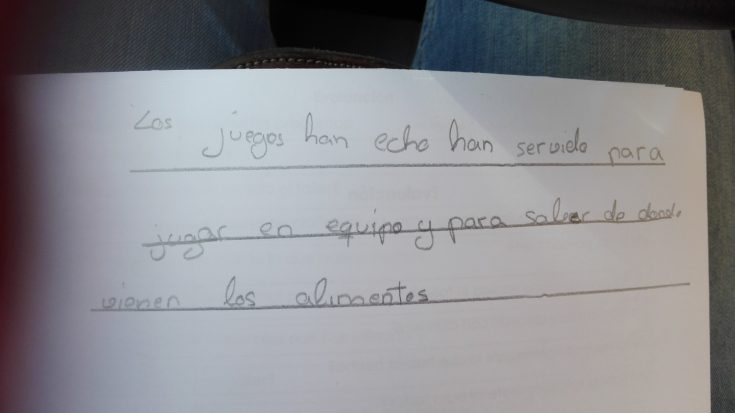 Los juegos han echo han servido para
jugar en equipo y para saber de donde
vienen los alimentos